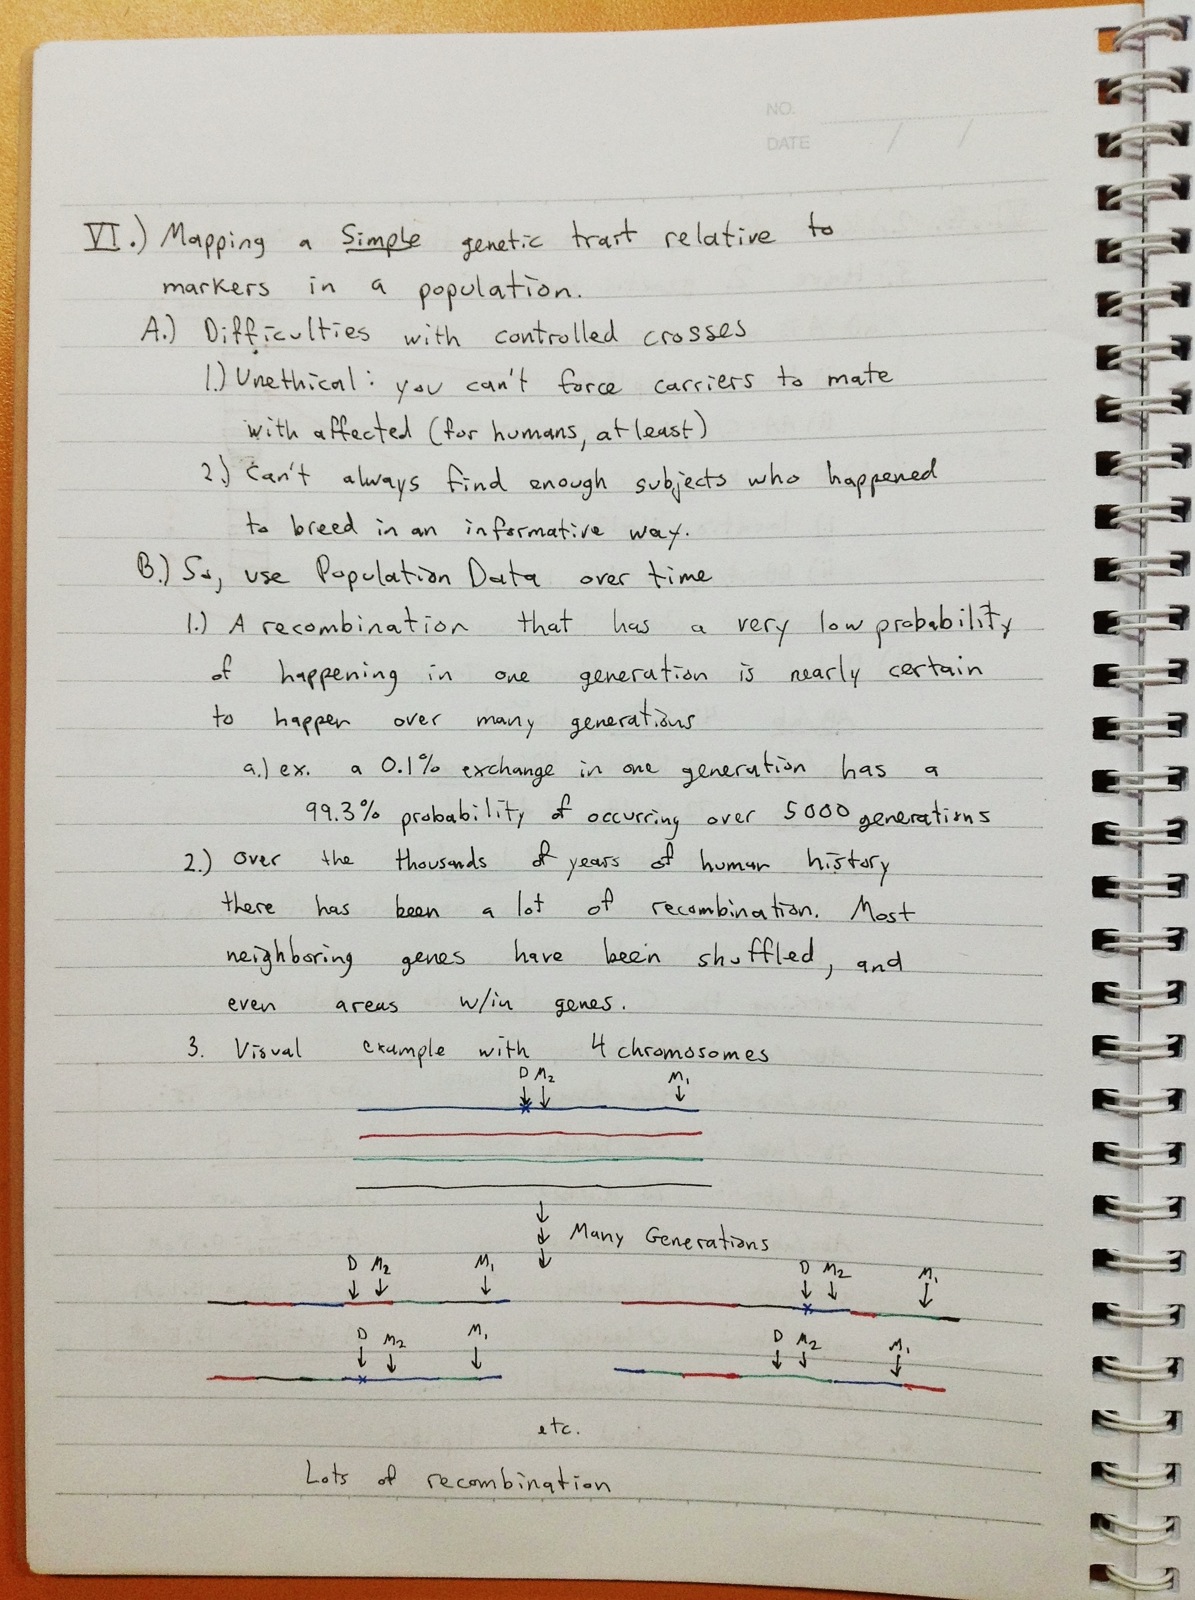 NO.
DATE / /
VI.) Mapping a Simple genetic trait relative to
markers in a population.
A.) Difficulties with controlled crosses
1.) Unethical: you can't force carriers to mate
with affected (for humans, at least)
2.) Can't always find enough subjects who happened
to breed in an informative way.
B.) So, use Population Data over time
1.) A recombination that has a very low probability
of happening in one generation is nearly certain
to happen over many generations
a.) ex. a 0.1% exchange in one generation has a
99.3% probability of occurring over 5000 generations
2.) Over the thousands of years of human history
there has been a lot of recombination. Most
neighboring genes have been shuffled, and
even areas w/in genes.
3. Visual example with 4 chromosomes
D M₂ M₁
Many Generations
D M₂ M₁ D M₂ M₁
D M₂ M₁ D M₂ M₁
etc.
Lots of recombination